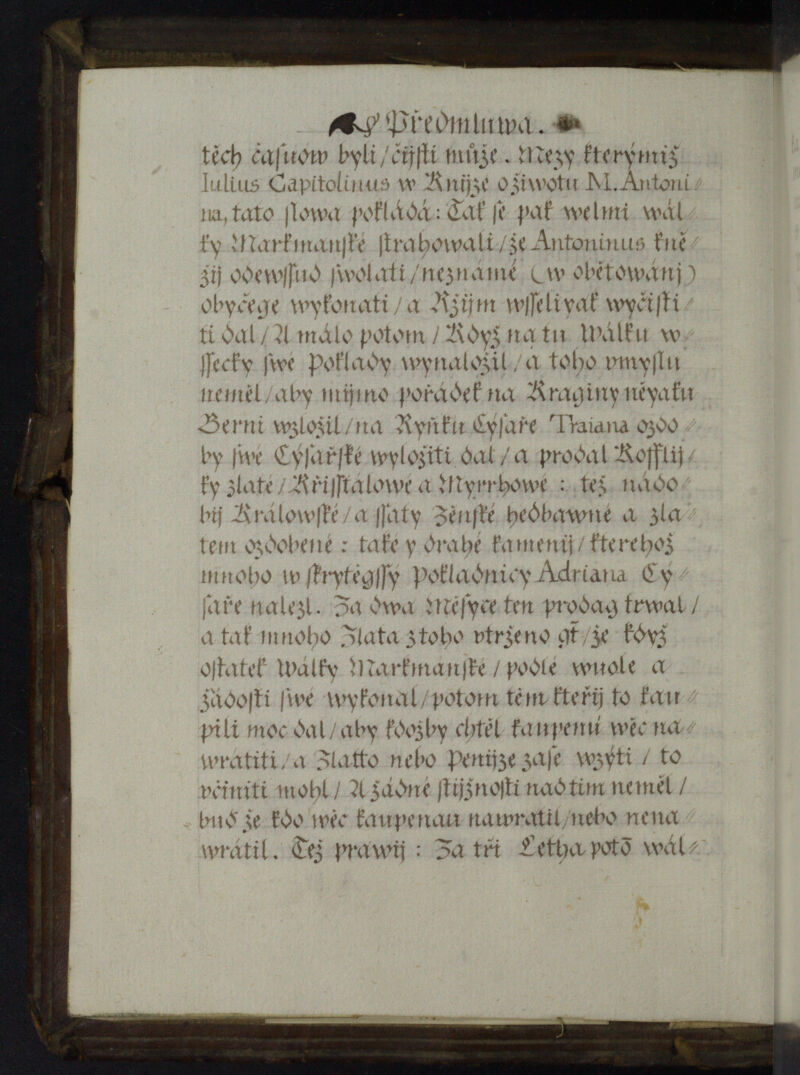 Předmluwa.
těch časuow byli/čijsti může. Mezy kterýmiž
Iulius Capitolinus w Knijže o žiwotu M. Antoni
na, tato slowa pokládá: Tak se pak welmi wál
ky Markmanské strahowali/že Antoninus kně
žij odewssud swolati/neznámé (w obětowánj)
obyčege wykonati/a Ržijm wsseliyak wyčisti
ti dal/A málo potom/Když na tu Wálku w
ssecky swé Poklady wynaložil/a toho vmyslu
neměl/aby mijmo pořádek na Kraginy něyaku
Berni wzložil/na Rynku Cysaře Traiana ozdo
by swé Cýsařské wyložiti dal/a prodal Kofflij
ky zlaté/Křisstálowé a Myrrhowé: též nádo
bij Králowské/a ssaty Ženské hedbawné a zla
tem ozdobené: také y drahé kamenij/kterehož
mnoho w skrytégssy Pokladnicy Adriana Cy
saře nalezl. Za dwa Měsyce ten prodag trwal/
a tak mnoho Zlata z toho vtrženo gt/že když
ostatek Wálky Markmanské/podlé wuole a
žádosti swé wykonal/potom těm kteřij to kau
pili moc dal/aby kdožby chtěl kaupenú wěc na
wrátiti/a Zlatto nebo Penijze zase wzýti/to
včiniti mohl/A žádné stijžnosti nad tim neměl/
buď že kdo wěc kaupenau nawratil/nebo nena
wrátil. Též prawij: Za tři Letha potō wál